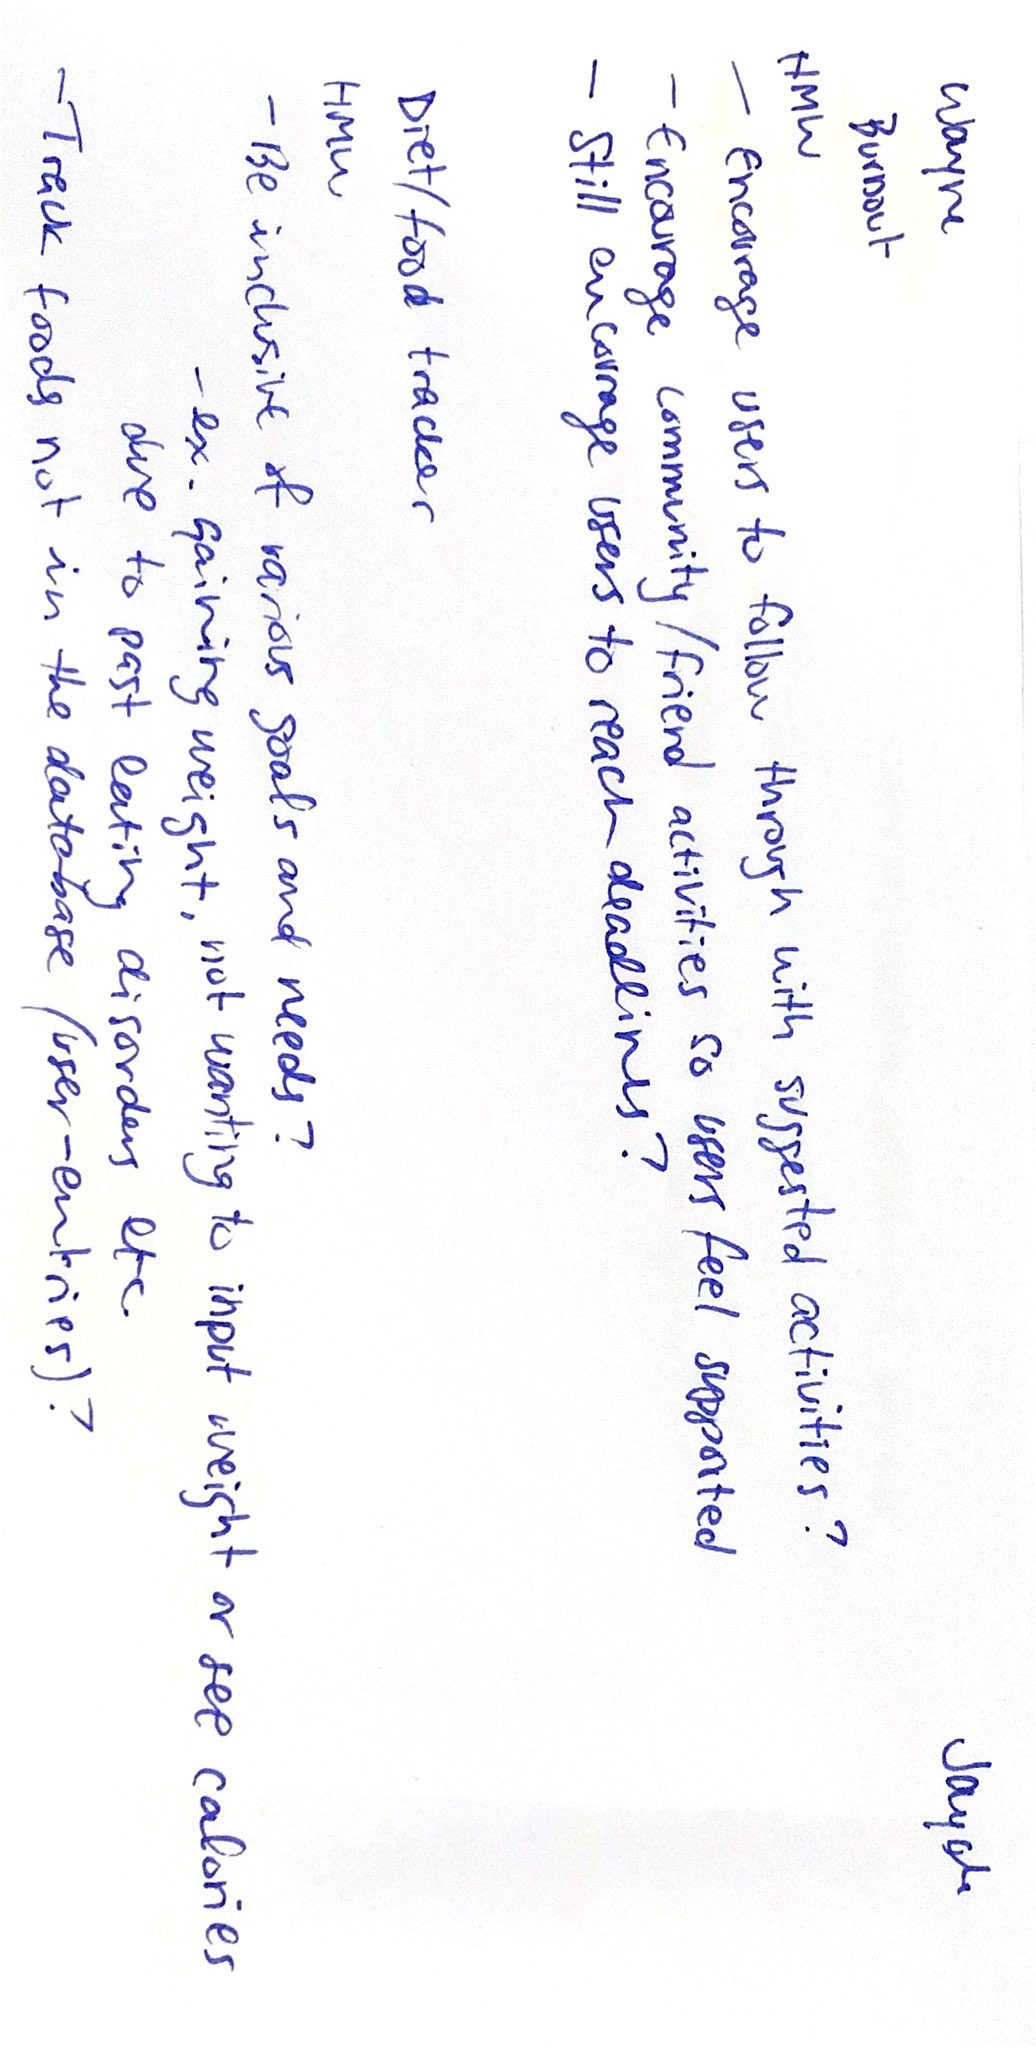 Wayne
Burnout
HMW
- Encourage users to follow through with suggested activities?
- Encourage community/friend activities so users feel supported
- Still encourage users to reach deadlines?
Diet/food tracker
HMW
- Be inclusive of various goals and needs?
- ex. gaining weight, not wanting to input weight or see calories
due to past eating disorders etc.
- Track foods not in the database (user-entries)?